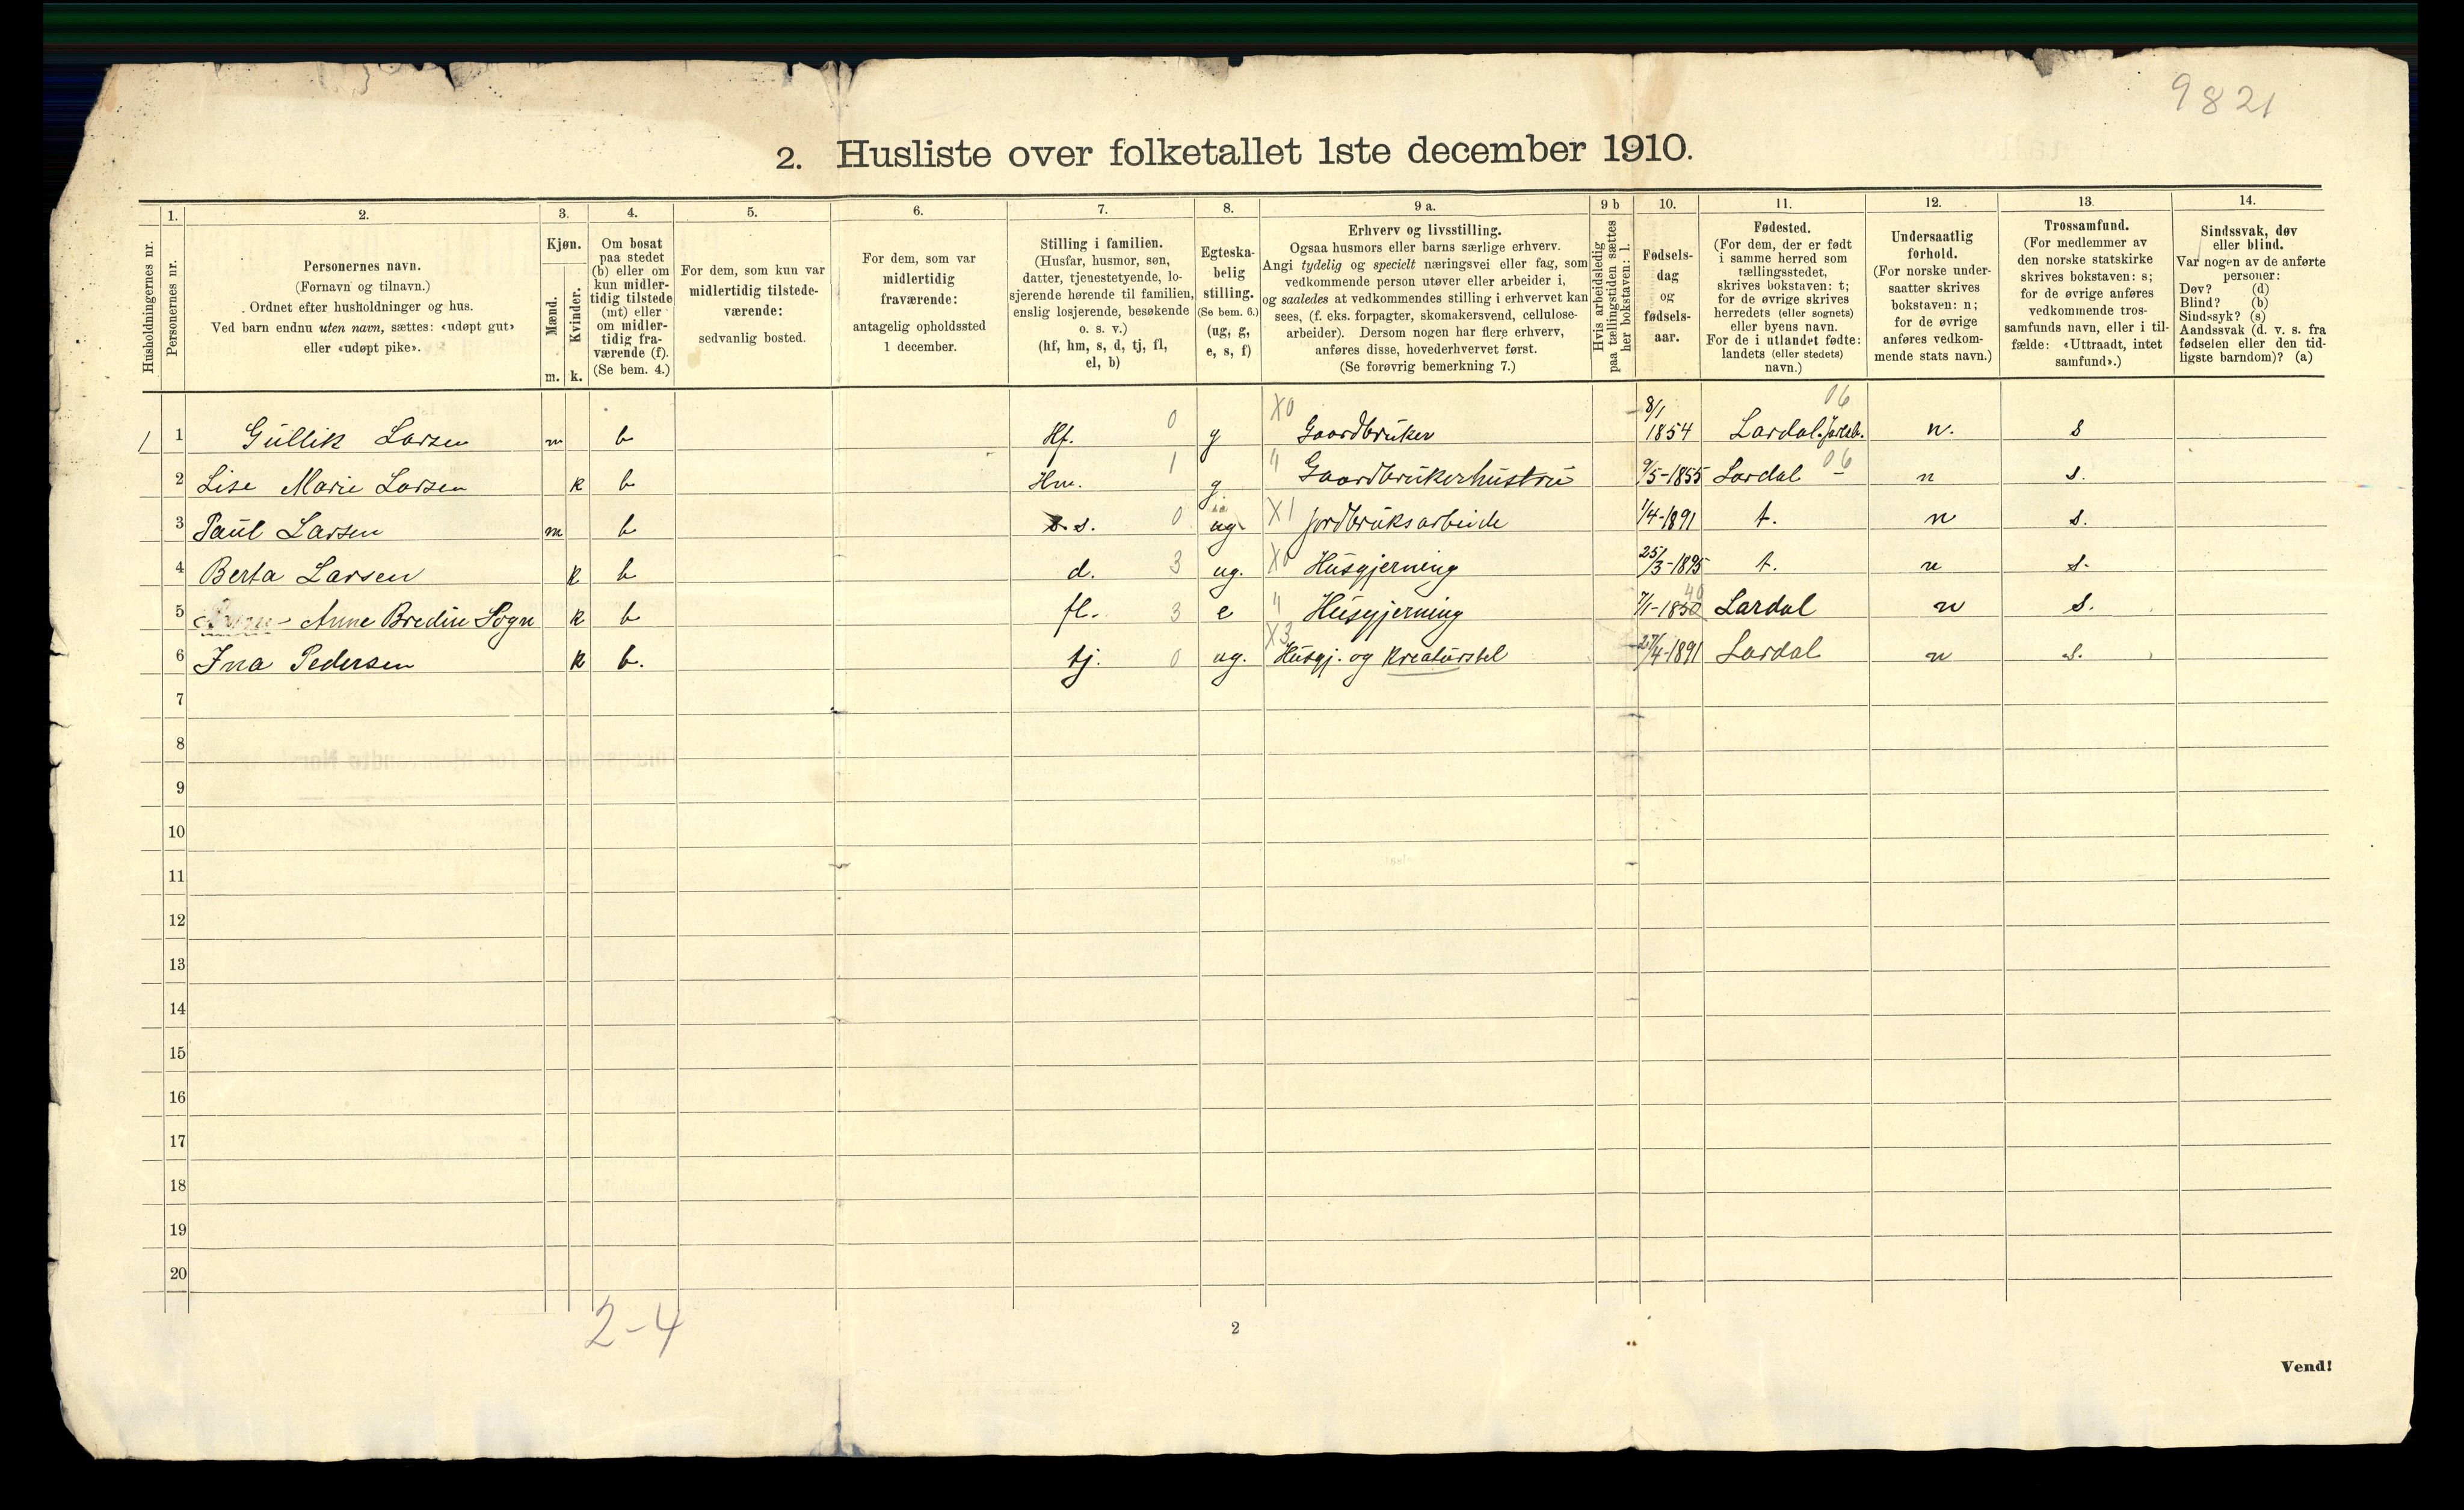 9821
2. Husliste over folketallet 1ste december 1910.
Husholdningernes nr.
1.
Personernes nr.
2.
Personernes navn.
(Fornavn og tilnavn.)
Ordnet efter husholdninger og hus.
Ved barn endnu uten navn, sættes: «udøpt gut»
eller «udøpt pike».
3.
Kjøn.
Mænd.
Kvinder.
m. k.
4.
Om bosat
paa stedet
(b) eller om
kun midler-
tidig tilstede
(mt) eller
om midler-
tidig fra-
værende (f).
(Se bem. 4.)
5.
For dem, som kun var
midlertidig tilstede-
værende:
sedvanlig bosted.
6.
For dem, som var
midlertidig
fraværende:
antagelig opholdssted
1 december.
7.
Stilling i familien.
(Husfar, husmor, søn,
datter, tjenestetyende, lo-
sjerende hørende til familien,
enslig losjerende, besøkende
o. s. v.)
(hf, hm, s, d, tj, fl,
el, b)
8.
Egteska-
belig
stilling.
(Se bem. 6.)
(ug, g,
e, s, f)
9 a.
Erhverv og livsstilling.
Ogsaa husmors eller barns særlige erhverv.
Angi tydelig og specielt næringsvei eller fag, som
vedkommende person utøver eller arbeider i,
og saaledes at vedkommendes stilling i erhvervet kan
sees, (f. eks. forpagter, skomakersvend, cellulose-
arbeider). Dersom nogen har flere erhverv,
anføres disse, hovederhvervet først.
(Se forøvrig bemerkning 7.)
9 b
Hvis arbeidsledig
paa tællingstiden sættes
her bokstaven: l.
10.
Fødsels-
dag
og
fødsels-
aar.
11.
Fødested.
(For dem, der er født
i samme herred som
tællingsstedet,
skrives bokstaven: t;
for de øvrige skrives
herredets (eller sognets)
eller byens navn.
For de i utlandet fødte:
landets (eller stedets)
navn.)
12.
Undersaatlig
forhold.
(For norske under-
saatter skrives
bokstaven: n;
for de øvrige
anføres vedkom-
mende stats navn.)
13.
Trossamfund.
(For medlemmer av
den norske statskirke
skrives bokstaven: s;
for de øvrige anføres
vedkommende tros-
samfunds navn, eller i til-
fælde: «Uttraadt, intet
samfund».)
14.
Sindssvak, døv
eller blind.
Var nogen av de anførte
personer:
Døv? (d)
Blind? (b)
Sindssyk? (s)
Aandssvak (d. v. s. fra
fødselen eller den tid-
ligste barndom)? (a)
1 1 Gullik Larsen m b Hf. 0 g X0 Gaardbruker 8/1 1854 Lardal. Jarlsb. 06 n. s
2 Lise Marie Larsen k b Hm. 1 g " Gaardbrukerhustru 9/5-1855 Lardal 06 n s.
3 Paul Larsen m b s. 0 ug. X1 Jordbruksarbeide 1/4-1891 t. n s.
4 Berta Larsen k b d. 3 ug. X0 Husgjerning 25/3-1895 t. n s.
5 Anne Bredine Sogn k b fl. 3 e " Husgjerning 7/1-1850 40 Lardal n s.
6 Ina Pedersen k b. tj. 0 ug. X3 Husgj. og Kreaturstel 27/4-1891 Lardal n s.
7
8
9
10
11
12
13
14
15
16
17
18
19
20
2-4
2
Vend!